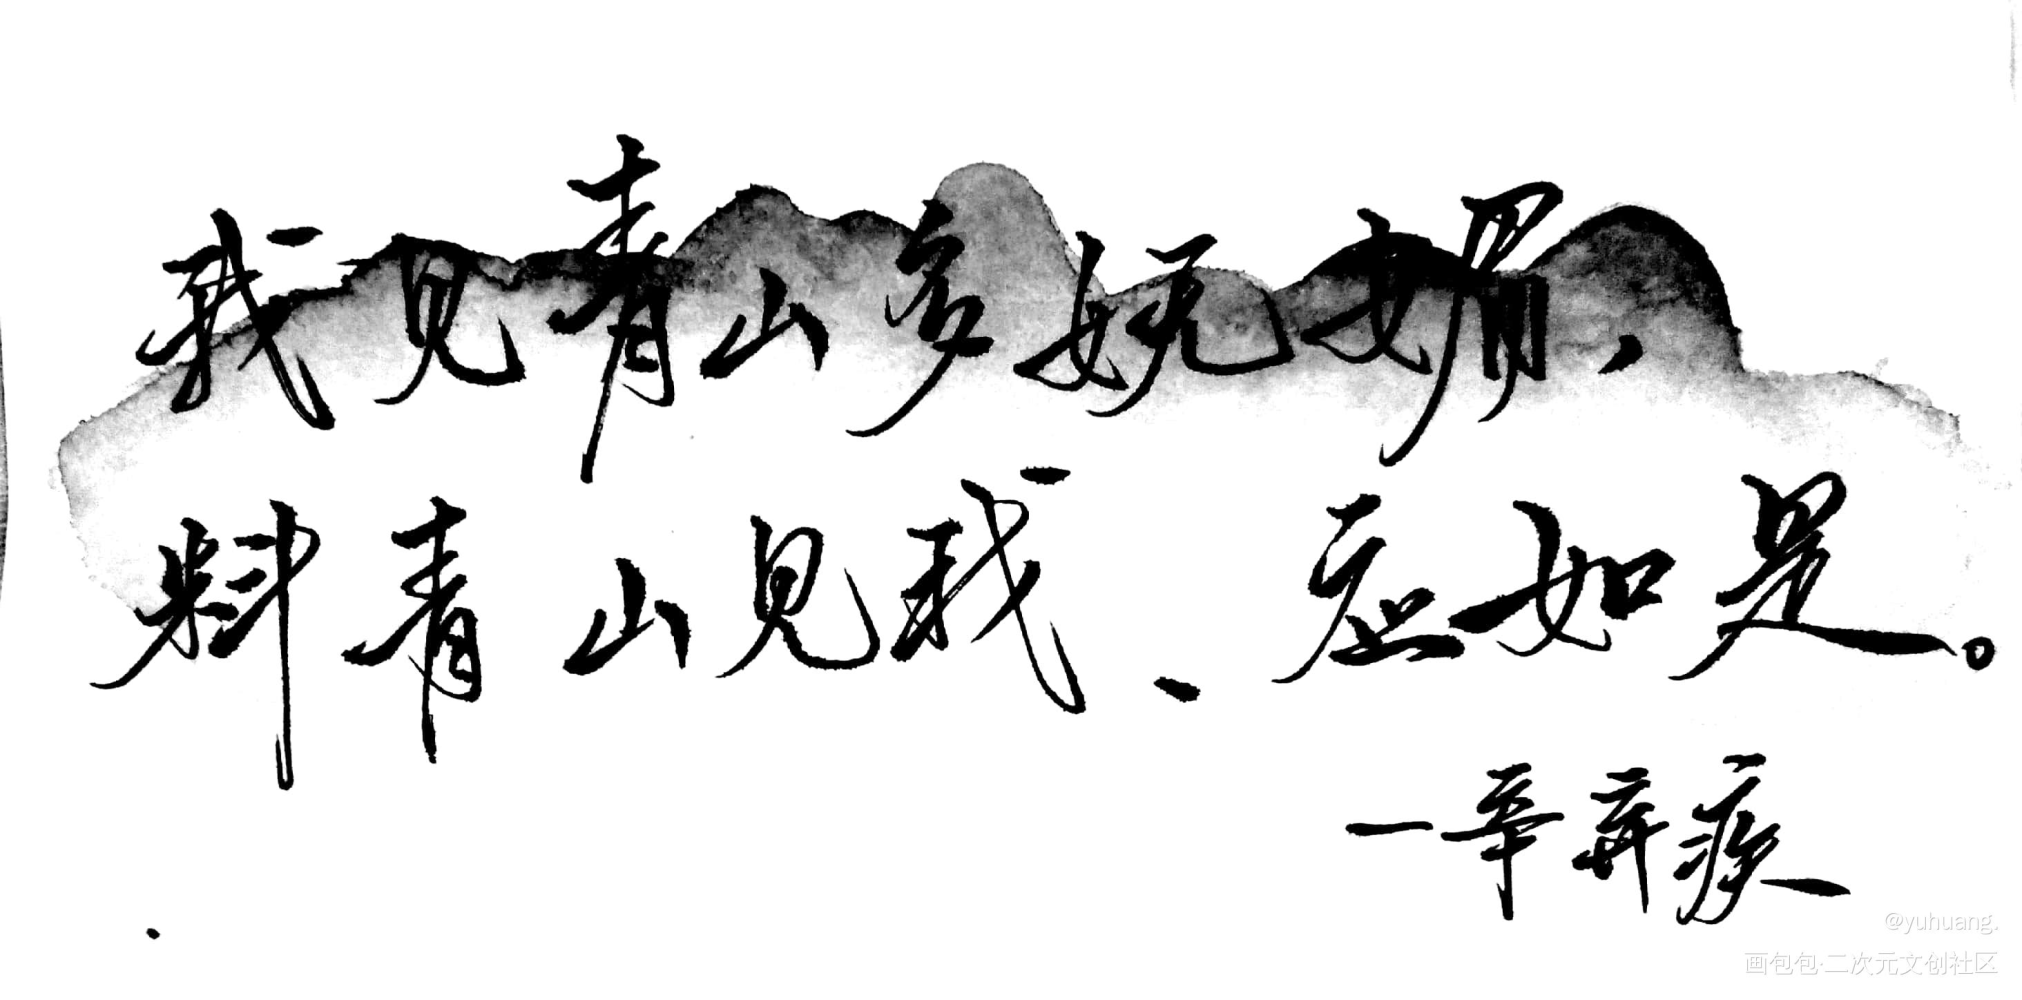 我见青山多妩媚,
料青山见我、应如是。
一辛弃疾
@yuhuang.
画包包·二次元文创社区